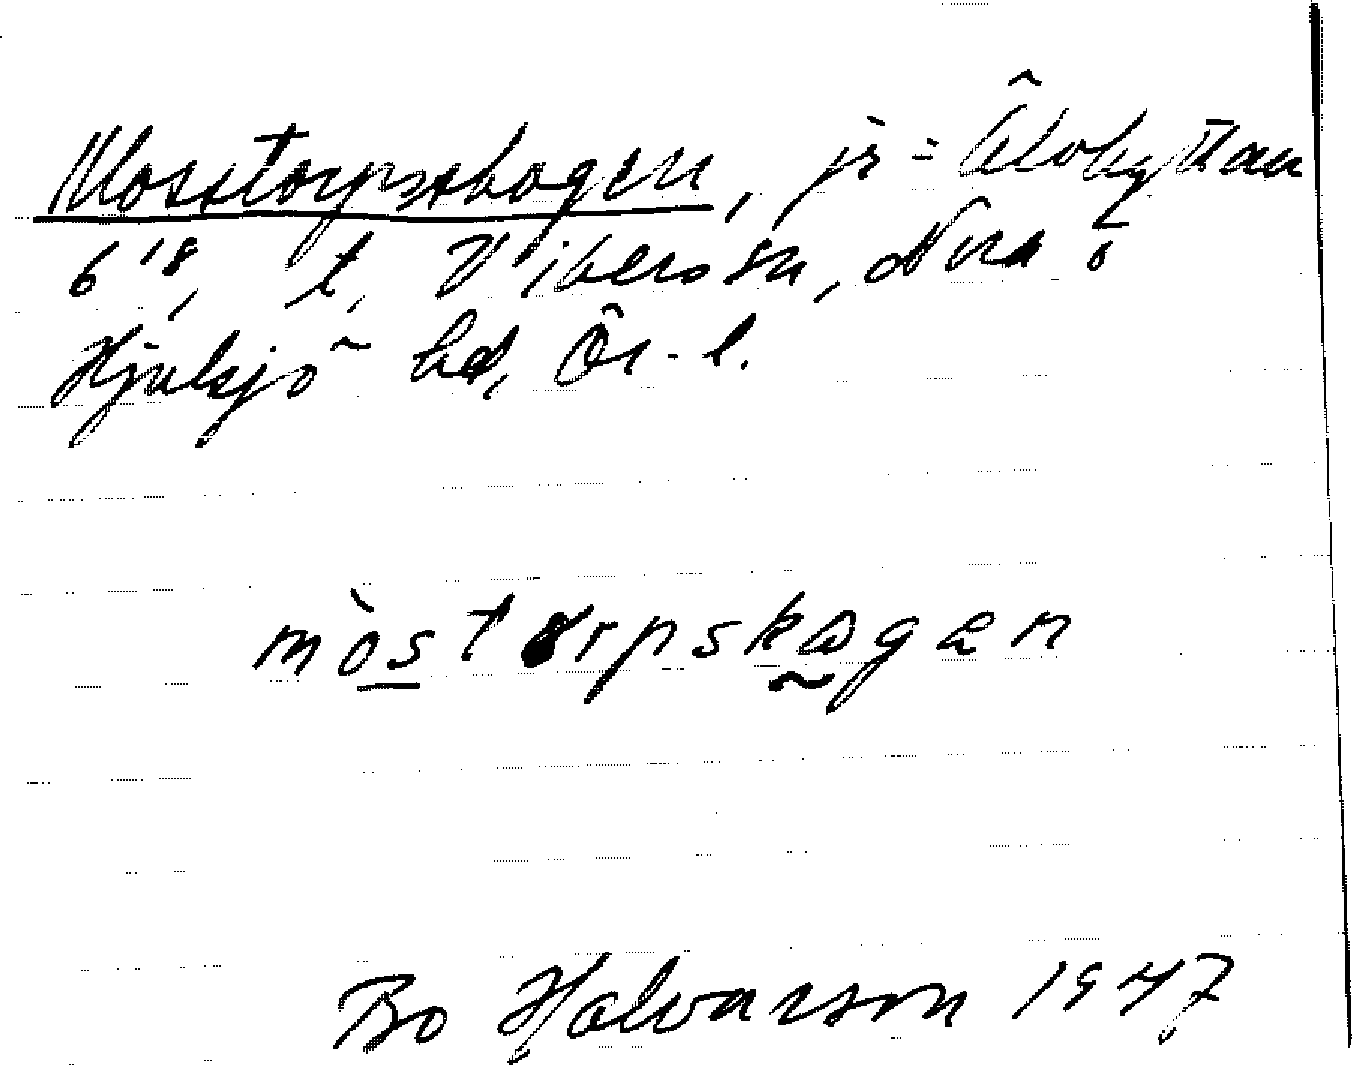 Mosstorpsskogen, js = Älvhyttan
6¹⁸, t. Vibergsn, Nora o
Hjulsjö hd, Ör. l.
mòstorpskogan
Bo Halvarson 1947